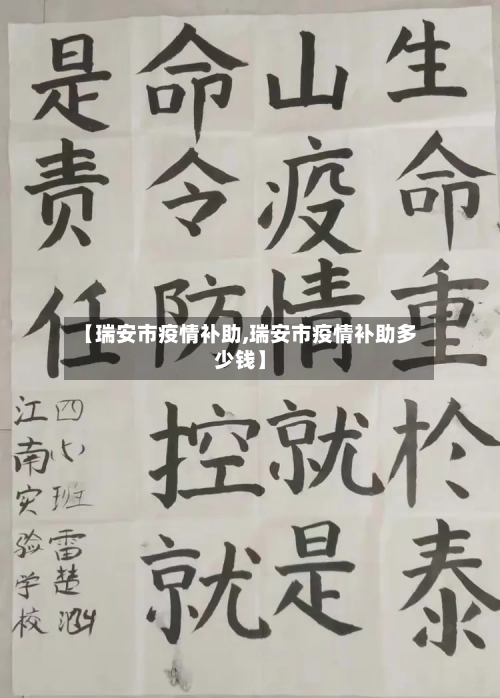 生命重於泰
山疫情就是
命令防控就
是责任
四班雷楚
江南实验学校
【瑞安市疫情补助,瑞安市疫情补助多
少钱】